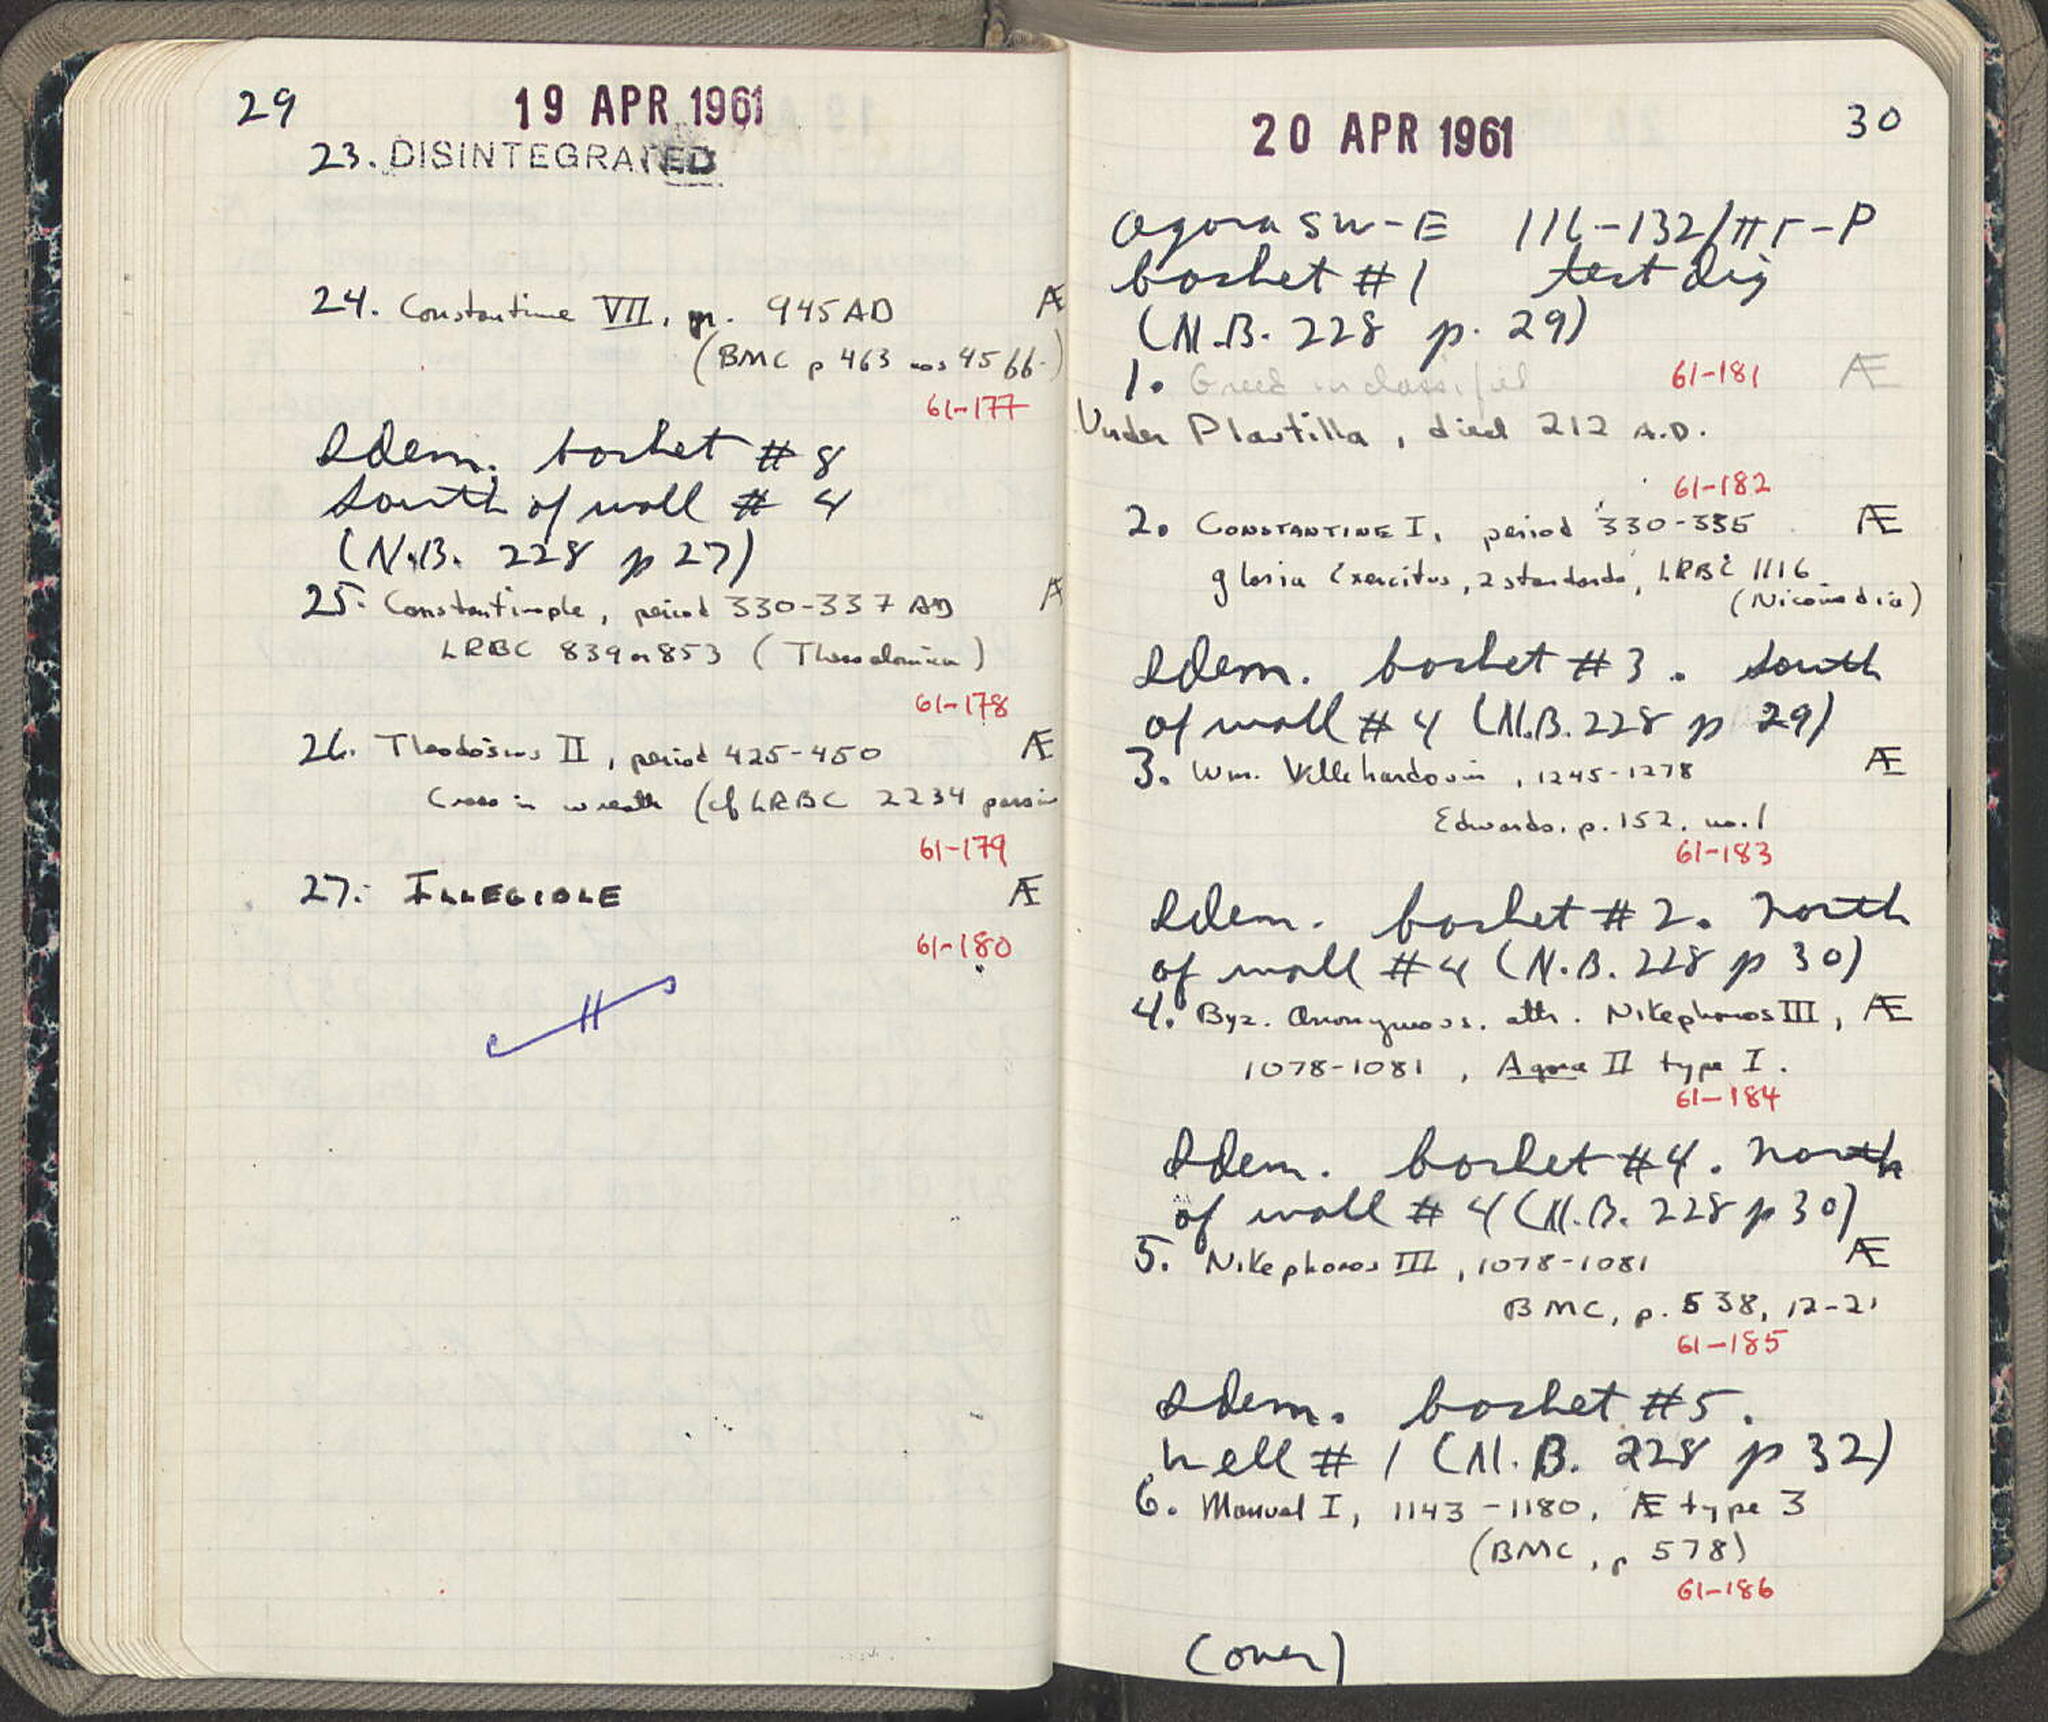 29
19 APR 1961
23. DISINTEGRATED
24. Constantine VII, 945 AD Æ
(BMC p 463 nos 45 66-)
61-177
Idem. basket # 8
South of wall # 4
(N.B. 228 p 27)
25. Constantinople, period 330-337 AD Æ
LRBC 839 or 853 (Thessalonica)
61-178
26. Theodosius II, period 425-450 Æ
Cross in wreath (cf LRBC 2234 passim
61-179
27. ILLEGIBLE Æ
61-180
20 APR 1961
30
Agora SW-E 116-132/ΠΓ-P
basket #1 test dig
(N.B. 228 p. 29)
1. Greek unclassified 61-181 Æ
Under Plautilla, died 212 A.D.
61-182
2. CONSTANTINE I, period 330-335 Æ
gloria Exercitus, 2 standards, LRBC 1116
(Nicomedia)
Idem. basket #3. South
of wall #4 (N.B. 228 p 29)
3. Wm. Villehardouin, 1245-1278 Æ
Edwards. p. 152. no. 1
61-183
Idem. basket #2. North
of wall #4 (N.B. 228 p 30)
4. Byz. Anonymous. attr. Nikephoros III, Æ
1078-1081, Agora II type I.
61-184
Idem. basket #4. North
of wall #4 (N.B. 228 p 30)
5. Nikephoros III, 1078-1081 Æ
BMC, p. 538, 12-21
61-185
Idem. basket #5.
Well #1 (N.B. 228 p 32)
6. Manuel I, 1143-1180, Æ type 3
(BMC, p 578)
61-186
(over)